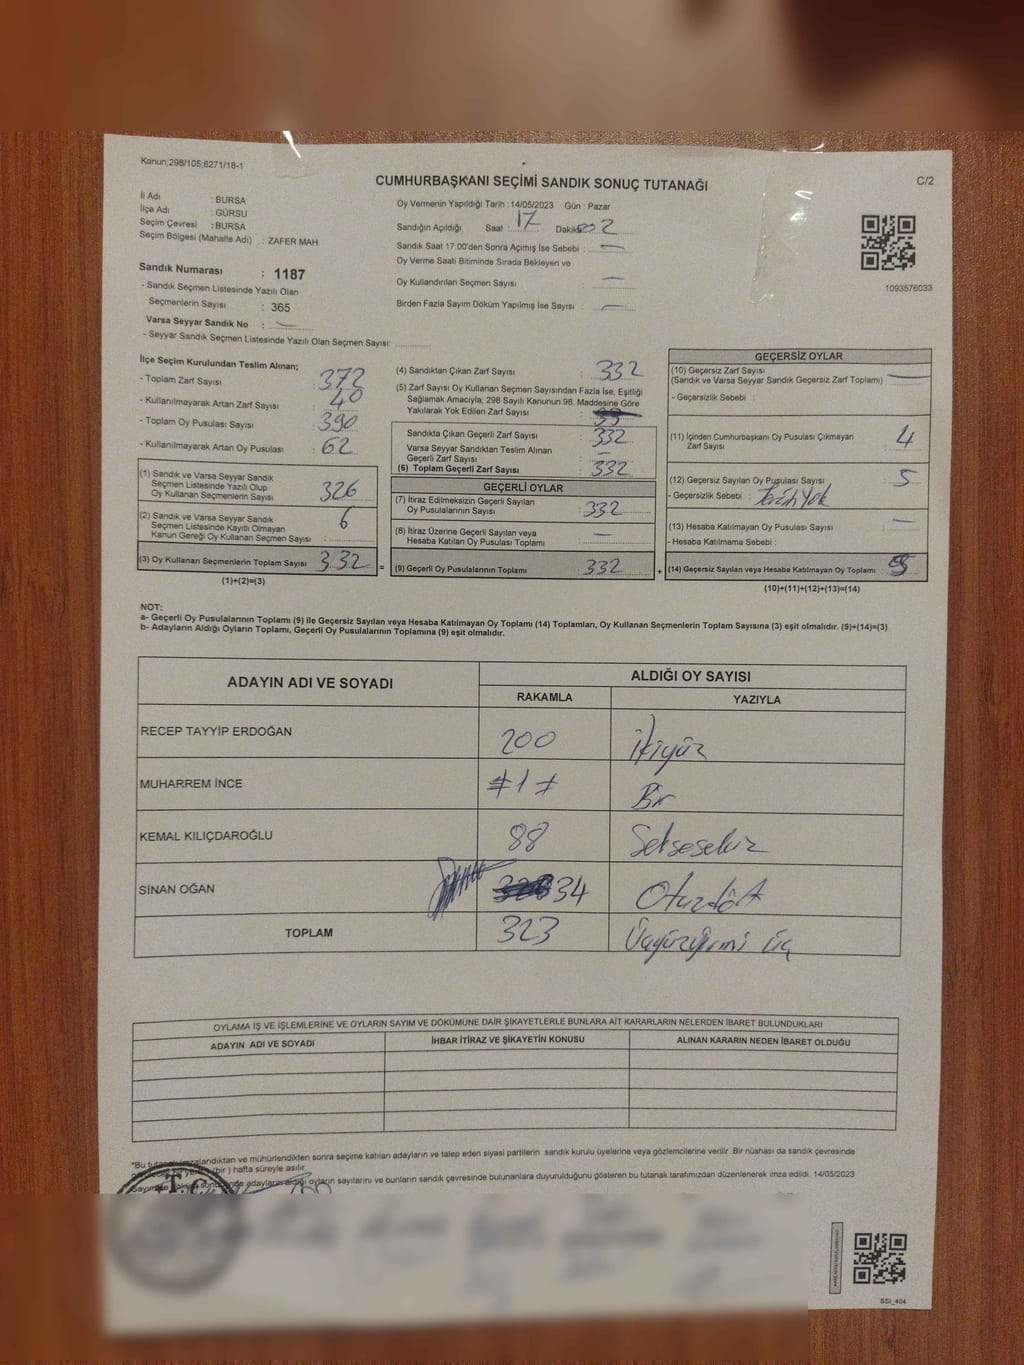 Kanun;298/105;6271/18-1
CUMHURBAŞKANI SEÇİMİ SANDIK SONUÇ TUTANAĞI
C/2
İl Adı : BURSA
İlçe Adı : GÜRSU
Seçim Çevresi : BURSA
Seçim Bölgesi (Mahalle Adı) : ZAFER MAH.
Sandık Numarası : 1187
- Sandık Seçmen Listesinde Yazılı Olan
Seçmenlerin Sayısı : 365
Varsa Seyyar Sandık No : —
- Seyyar Sandık Seçmen Listesinde Yazılı Olan Seçmen Sayısı:
Oy Vermenin Yapıldığı Tarih : 14/05/2023 Gün : Pazar
Sandığın Açıldığı Saat : 17 Dakika
Sandık Saat 17:00'den Sonra Açımış İse Sebebi : —
Oy Verme Saati Bitiminde Sırada Bekleyen ve
Oy Kullandırılan Seçmen Sayısı : —
Birden Fazla Sayım Döküm Yapılmış İse Sayısı : —
1093576033
İlçe Seçim Kurulundan Teslim Alınan;
- Toplam Zarf Sayısı : 372
- Kullanılmayarak Artan Zarf Sayısı : 40
- Toplam Oy Pusulası Sayısı : 390
- Kullanılmayarak Artan Oy Pusulası : 62
(1) Sandık ve Varsa Seyyar Sandık
Seçmen Listesinde Yazılı Olup
Oy Kullanan Seçmenlerin Sayısı : 326
(2) Sandık ve Varsa Seyyar Sandık
Seçmen Listesinde Kayıtlı Olmayan
Kanun Gereği Oy Kullanan Seçmen Sayısı : 6
(3) Oy Kullanan Seçmenlerin Toplam Sayısı : 332
(1)+(2)=(3)
(4) Sandıktan Çıkan Zarf Sayısı : 332
(5) Zarf Sayısı Oy Kullanan Seçmen Sayısından Fazla İse, Eşitliği
Sağlamak Amacıyla; 298 Sayılı Kanunun 98. Maddesine Göre
Yakılarak Yok Edilen Zarf Sayısı
Sandıkta Çıkan Geçerli Zarf Sayısı : 332
Varsa Seyyar Sandıktan Teslim Alınan
Geçerli Zarf Sayısı : —
(6) Toplam Geçerli Zarf Sayısı : 332
GEÇERLİ OYLAR
(7) İtiraz Edilmeksizin Geçerli Sayılan
Oy Pusulalarının Sayısı : 332
(8) İtiraz Üzerine Geçerli Sayılan veya
Hesaba Katılan Oy Pusulası Toplamı : —
= (9) Geçerli Oy Pusulalarının Toplamı : 332
GEÇERSİZ OYLAR
(10) Geçersiz Zarf Sayısı
(Sandık ve Varsa Seyyar Sandık Geçersiz Zarf Toplamı) —
- Geçersizlik Sebebi :
(11) İçinden Cumhurbaşkanı Oy Pusulası Çıkmayan
Zarf Sayısı : 4
(12) Geçersiz Sayılan Oy Pusulası Sayısı : 5
- Geçersizlik Sebebi :
(13) Hesaba Katılmayan Oy Pusulası Sayısı : —
- Hesaba Katılmama Sebebi :
+ (14) Geçersiz Sayılan veya Hesaba Katılmayan Oy Toplamı :
(10)+(11)+(12)+(13)=(14)
NOT:
a- Geçerli Oy Pusulalarının Toplamı (9) ile Geçersiz Sayılan veya Hesaba Katılmayan Oy Toplamı (14) Toplamları, Oy Kullanan Seçmenlerin Toplam Sayısına (3) eşit olmalıdır. (9)+(14)=(3)
b- Adayların Aldığı Oyların Toplamı, Geçerli Oy Pusulalarının Toplamına (9) eşit olmalıdır.
ADAYIN ADI VE SOYADI ALDIĞI OY SAYISI
RAKAMLA YAZIYLA
RECEP TAYYİP ERDOĞAN 200 İkiyüz
MUHARREM İNCE ≠1≠ Bir
KEMAL KILIÇDAROĞLU 88 Seksesekiz
SİNAN OĞAN 34 Otuzdört
TOPLAM 323 Üçyüzyirmi üç
OYLAMA İŞ VE İŞLEMLERİNE VE OYLARIN SAYIM VE DÖKÜMÜNE DAİR ŞİKAYETLERLE BUNLARA AİT KARARLARIN NELERDEN İBARET BULUNDUKLARI
ADAYIN ADI VE SOYADI İHBAR İTİRAZ VE ŞİKAYETİN KONUSU ALINAN KARARIN NEDEN İBARET OLDUĞU
"Bu tutanak imzalandıktan ve mühürlendikten sonra seçime katılan adayların ve talep eden siyasi partilerin sandık kurulu üyelerine veya gözlemcilerine verilir .Bir nüshası da sandık çevresinde
yere (bir ) hafta süreyle asılır.
adayların aldığı oyların sayılarını ve bunların sandık çevresinde bulunanlara duyurulduğunu gösteren bu tutanak tarafımızdan düzenlenerek imza edildi. 14/05/2023
T.C.
SSI_404